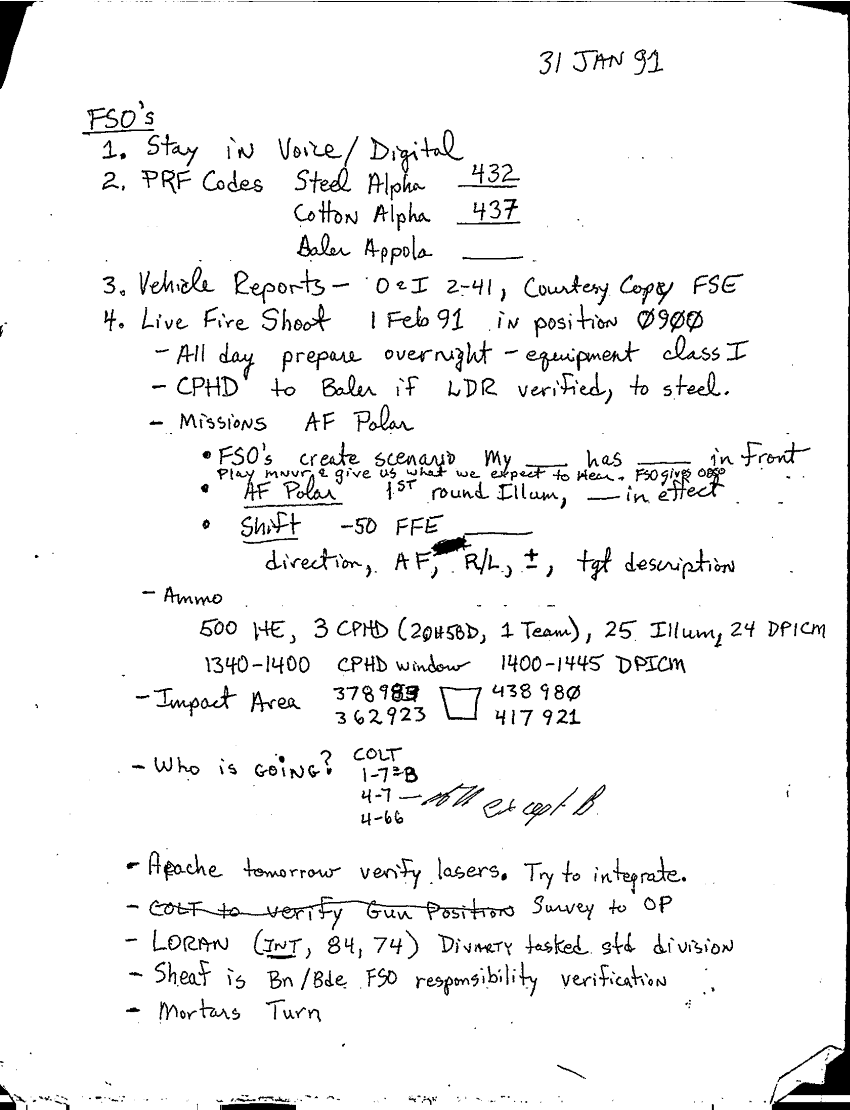 31 JAN 91
FSO's
1. Stay in Voice/Digital
2. PRF Codes Steel Alpha 432
Cotton Alpha 437
Baler Appola ____
3. Vehicle Reports - O & I 2-41, Courtesy Copy FSE
4. Live Fire Shoot 1 Feb 91 in position 0900
- All day prepare overnight - equipment class I
- CPHD to Baler if LDR verified, to steel.
- Missions AF Polar
• FSO's create scenario My ____ has ____ in front
Play mnvr & give us what we expect to hear. FSO gives obso
• AF Polar 1ST round Illum, ___ in effect
• Shift -50 FFE ____
direction, AF, R/L, ±, tgt description
- Ammo
500 HE, 3 CPHD (20H58D, 1 Team), 25 Illum, 24 DPICM
1340-1400 CPHD window 1400-1445 DPICM
- Impact Area 378983 438980
362923 417921
- Who is GOING? COLT
1-7 B
4-7 — all except B
4-66
- Apache tomorrow verify lasers. Try to integrate.
- COLT to verify Gun Position Survey to OP
- LORAN (INT, 84, 74) Divarty tasked std division
- Sheaf is Bn/Bde FSO responsibility verification
- Mortars Turn